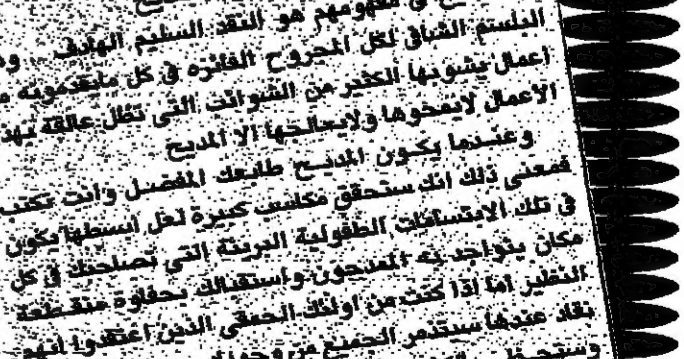 في مفهومهم هو النقد السليم الهادف
البلسم الشافي لكل الجروح الغائرة في كل مايقدمونه
اعمال يشوبها الكثير من الشوائب التي تظل عالقة بهذ
الاعمال لايمحوها ولايعالجها الا المديح
وعندما يكون المديح طابعك المفضل وانت تكتب
فمعنى ذلك انك ستحقق مكاسب كبيرة لعل ابسطها يكون
في تلك الابتسامات الطفولية البريئة التي تصاحبك في كل
مكان يتواجد به المداحون واستقبالك بحفاوة منقطعة
النظير اما إذا كنت من اولئك الحمقى الذين اعتقدوا انهم
نقاد عندها سيتذمر الجميع من وجودك